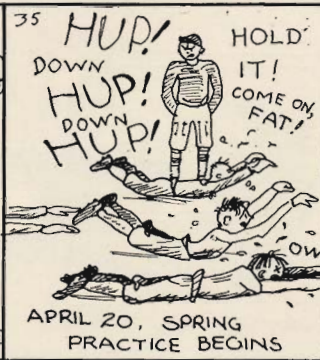 35
HUP!
DOWN
HUP!
DOWN
HUP!
HOLD
IT!
COME ON,
FAT!
OW
APRIL 20, SPRING
PRACTICE BEGINS